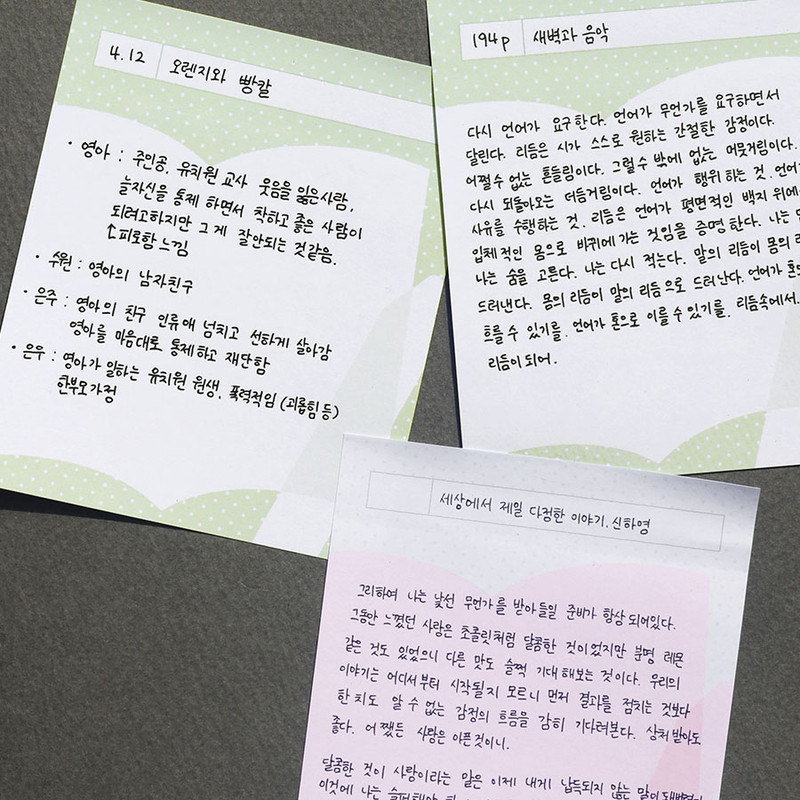 4.12 오렌지와 빵칼
• 영아 : 주인공. 유치원 교사 웃음을 잃은사람,
늘자신을 통제 하면서 착하고 좋은 사람이
되려고하지만 그게 잘안되는 것같음.
↑피로함 느낌
• 수원 : 영아의 남자친구
• 은주 : 영아의 친구 인류애 넘치고 선하게 살아감
영아를 마음대로 통제하고 재단함
• 은우 : 영아가 일하는 유치원 원생. 폭력적임 (괴롭힘 등)
한부모가정
194p 새벽과 음악
다시 언어가 요구한다. 언어가 무언가를 요구하면서
달린다. 리듬은 시가 스스로 원하는 간절한 감정이다.
어쩔수 없는 흔들림이다. 그럴수 밖에 없는 머뭇거림이다.
다시 되돌아오는 더듬거림이다. 언어가 행위 하는 것. 언어
사유를 수행하는 것. 리듬은 언어가 평면적인 백지 위에
입체적인 몸으로 바뀌에가는 것임을 증명한다. 나는
나는 숨을 고른다. 나는 다시 적는다. 말의 리듬이 몸의
드러낸다. 몸의 리듬이 말의 리듬으로 드러난다. 언어가
흐를 수 있기를. 언어가 혼으로 이를 수 있기를. 리듬속에서.
리듬이 되어.
세상에서 제일 다정한 이야기, 신하영
그리하여 나는 낯선 무언가를 받아들일 준비가 항상 되어있다.
그동안 느꼈던 사랑은 초콜릿처럼 달콤한 것이었지만 분명 레몬
같은 것도 있었으니 다른 맛도 슬쩍 기대해보는 것이다. 우리의
이야기는 어디서부터 시작될지 모르니 먼저 결과를 점치는 것보다
한 치도 알 수 없는 감정의 흐름을 감히 기다려본다. 상처받아도
좋다. 어쨌든 사랑은 아픈것이니.
달콤한 것이 사랑이라는 말은 이제 내게 납득되지 않는 말이
이것에 나는